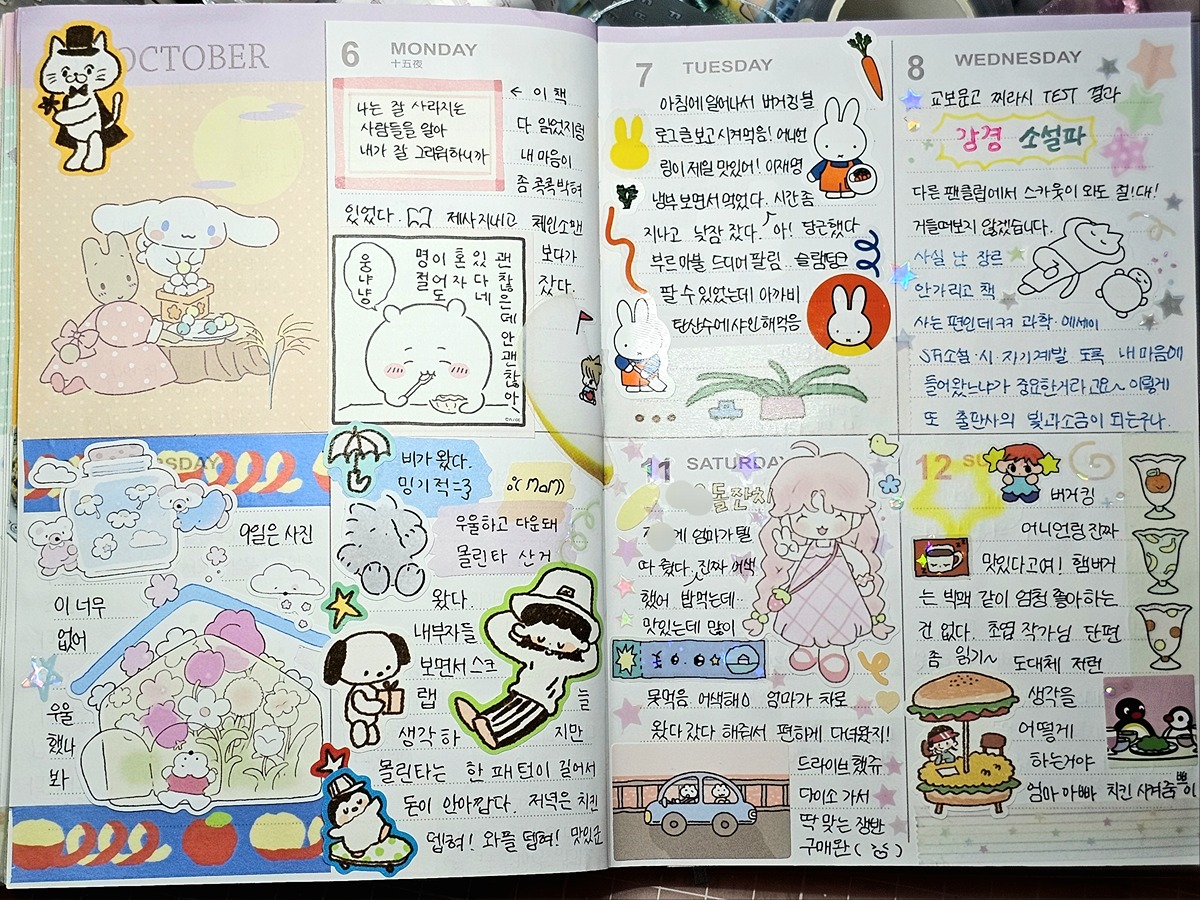 OCTOBER
6 MONDAY
十五夜
나는 잘 사라지는
사람들을 알아
내가 잘 그러워하니까
← 이 책
다 읽었지렁
내 마음이
좀 콕콕 박혀
있었다. 제사지내고 체인소맨
보다가
잤다.
웅냐냥
괜찮은데 안 괜찮아
있다네
혼자도
이어
명절
7 TUESDAY
아침에 일어나서 버거킹 불
로그른 보고 시켜먹음! 어니언
링이 제일 맛있어! 이재명
냉부 보면서 먹었다. 시간 좀
지나고 낮잠 잤다. 아! 당근했다
부르마블 드디어 팔림 슬램덩크
팔 수 있었는데 아까비
탄산수에 샤인해먹음
8 WEDNESDAY
교보문고 찌라시 TEST 결과
강경 소설파
다른 팬클럽에서 스카웃이 와도 절!대!
거들떠보지 않겠습니다.
사실 난 장르
안가리고 책
사는 편인데ㅋㅋ 과학·에세이
SF소설·시·자기계발 도록 내 마음에
들어왔느냐가 중요한거라고요~ 이렇게
또 출판사의 빛과소금이 되는구나.
9일은 사진
이 너무
없어
우울
했나
봐
비가 왔다.
밍기적=3
우울하고 다운돼
몰린타 산거
왔다.
내부자들
보면서 스크
랩 늘
생각하 지만
몰린타는 한 패턴이 길어서
돈이 안아깝다. 저녁은 치킨
뎁혀! 와플 뎁혀! 맛있군
11 SATURDAY
돌잔치
게 엄마가 뭘
따 줬다. 진짜 어색
했어 밥먹는데..
맛있는데 많이
못먹음 어색해ㅇ 엄마가 차로
왔다갔다 해줘서 편하게 다녀왔지!
드라이브했쥬
다이소 가서
딱 맞는 쟁반
구매완
12 SU
버거킹
어니언링 진짜
맛있다고여! 햄버거
는 빅맥 같이 엄청 좋아하는
건 없다. 초엽 작가님 단편
좀 읽기~ 도대체 저런
생각을
어떻게
하는거야
엄마 아빠 치킨 사겨줌 뽀이